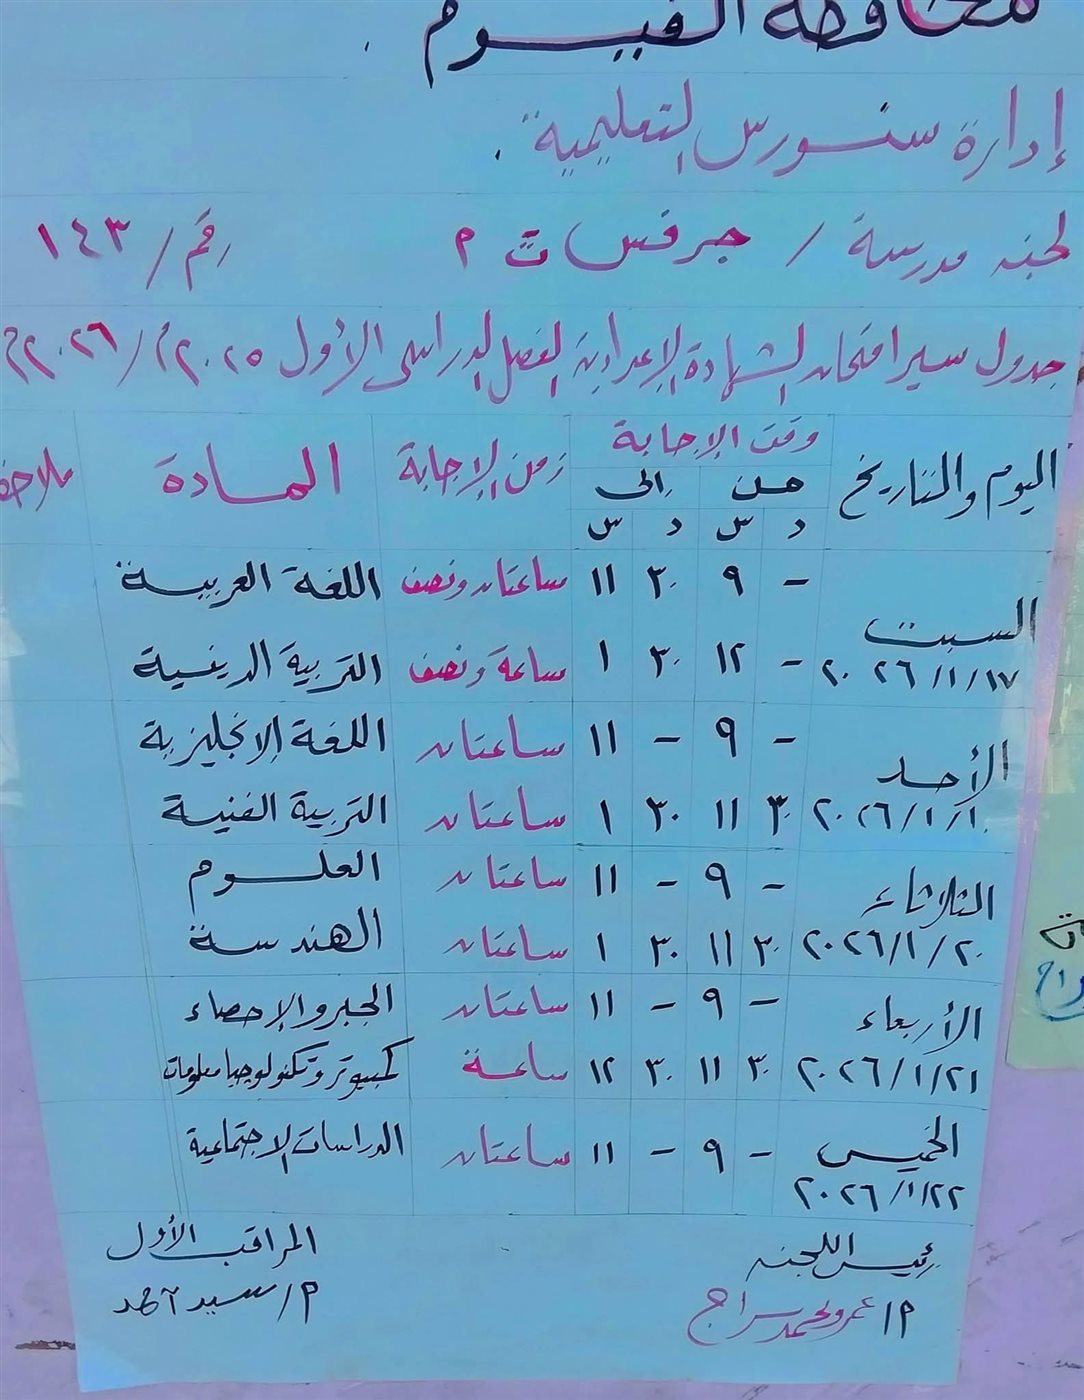 محافظة الفيوم
إدارة سنورس التعليمية
لجنه مدرسة / جرفس ت م رقم / ١٤٣
جدول سير امتحان الشهادة الإعدادية الفصل الدراسى الأول ٢٠٢٥م/٢٠٢٦م
اليوم والتاريخ وقت الإجابة زمن الإجابة المادة ملاحظ
من إلى
د س د س
السبت - ٩ ٣٠ ١١ ساعتان ونصف اللغة العربية
٢٠٢٦/١/١٧ - ١٢ ٣٠ ١ ساعة ونصف التربية الدينية
الأحد - ٩ - ١١ ساعتان اللغة الإنجليزية
٢٠٢٦/١/ ٣٠ ١١ ٣٠ ١ ساعتان التربية الفنية
الثلاثاء - ٩ - ١١ ساعتان العلوم
٢٠٢٦/١/٢٠ ٣٠ ١١ ٣٠ ١ ساعتان الهندسة
الأربعاء - ٩ - ١١ ساعتان الجبر والإحصاء
٢٠٢٦/١/٢١ ٣٠ ١١ ٣٠ ١٢ ساعة كمبيوتر وتكنولوجيا معلومات
الخميس - ٩ - ١١ ساعتان الدراسات الإجتماعية
٢٠٢٦/١/٢٢
رئيس اللجنه المراقب الأول
أ/ عمرو محمد سراج م/ سيد أحمد